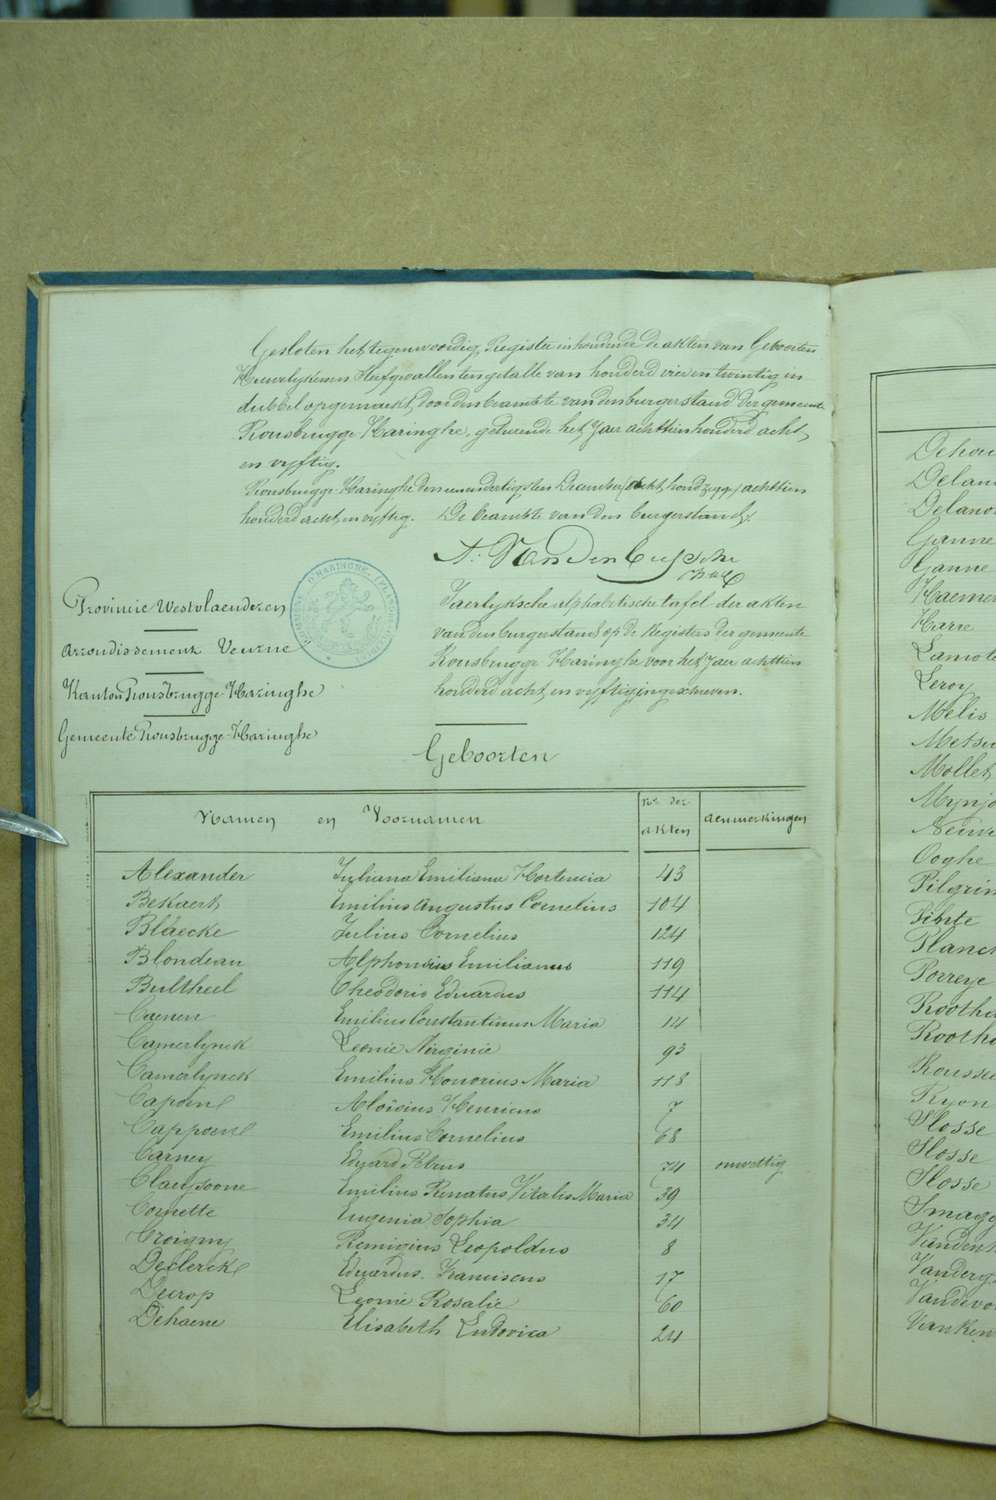 Gesloten het tegenwoordig Register inhoudende de akten van Geboorten
Huwelyken en Sterfgevallen ten getalle van honderd vier en twintig in
dubbel opgemaekt, door den beambte van den burgerstand der gemeente
Rousbrugge Haringhe, gedurende het Jaer achttien honderd acht
en vyftig.
Rousbrugge-Haringhe den een en dertigsten December achttien
honderd acht en vyftig. De beambte van den burgerstand,
Provincie Westvlaenderen
Arrondissement Veurne
Kanton Rousbrugge-Haringhe
Gemeente Rousbrugge-Haringhe
Jaerlyksche alphabetische tafel der akten
van den burgerstand op de Registers der gemeente
Rousbrugge Haringhe voor het Jaer achttien
honderd acht en vyftig ingeschreven.
Geboorten
Namen en Voornamen Nrs der akten Aenmerkingen
Alexander Juliana Emiliana Hortencia 43
Bekaert Emilius Augustus Cornelius 104
Blaecke Julius Cornelius 124
Blondeau Alphonsius Emilianus 119
Bultheel Theodoris Eduardus 114
Caenen Emilius Constantinus Maria 14
Camerlynck Leonie Virginie 93
Camerlynck Emilius Honorius Maria 118
Capoen Aloïsius Henricus 7
Cappoen Emilius Cornelius 68
Carney Eduard Petrus 74 onwettig
Claeysoone Emilius Renatus Vitalis Maria 39
Cornette Eugenia Sophia 34
Croigny Remigius Leopoldus 8
Declerck Eduardus Franciscus 17
Decrop Leonie Rosalie 60
Dehaene Elisabeth Ludovica 24
Ganne
Ganne
Harre
Leroy
Melis
Ooghe
Ryon
Slosse
Slosse
Slosse